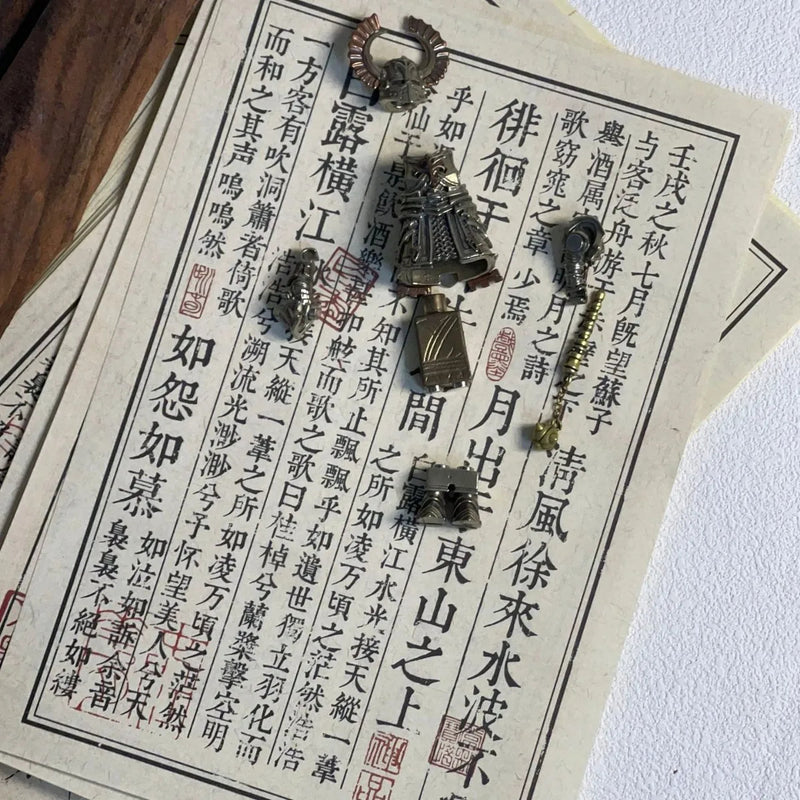 壬戌之秋七月既望蘇子
与客泛舟游于
之下
清風徐來水波不
舉酒属
明月之詩
歌窈窕之章 少焉
月出于東山之上
徘徊于
間
白露橫江水光接天縱一葦
之所如凌万頃之茫然浩浩
乎如
不知其所止飄飄乎如遺世獨立羽化而
仙于是飲酒樂甚扣舷而歌之歌曰桂棹兮蘭槳擊空明
白露橫江
接天縱一葦之所如凌万頃之茫然
兮溯流光渺渺兮予怀望美人兮天
一方客有吹洞簫者倚歌
而和之其声嗚嗚然
如怨如慕
如泣如訴余音
裊裊不絕如縷